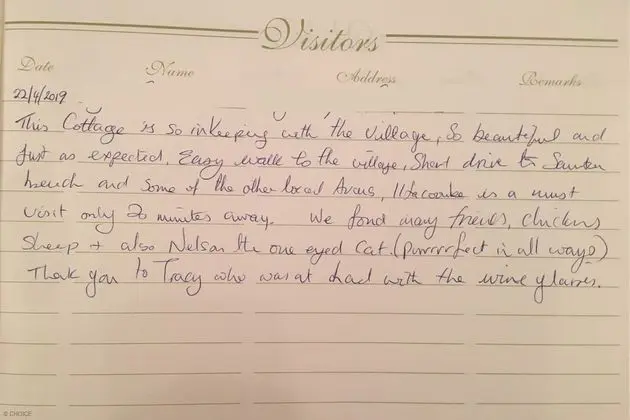 Visitors
Date Name Address Remarks
22/4/2019
This Cottage is so inkeeping with the village, So beautiful and
Just as expected, Easy walk to the village, Short drive to Saunton
beach and some of the other local Areas, Ilfracombe is a must
visit only 20 minutes away. We fond many friends, chickens
Sheep + also Nelson the one eyed Cat. (purrrrfect in all ways)
Thank you to Tracy who was at hand with the wine glasses.
© CHOICE